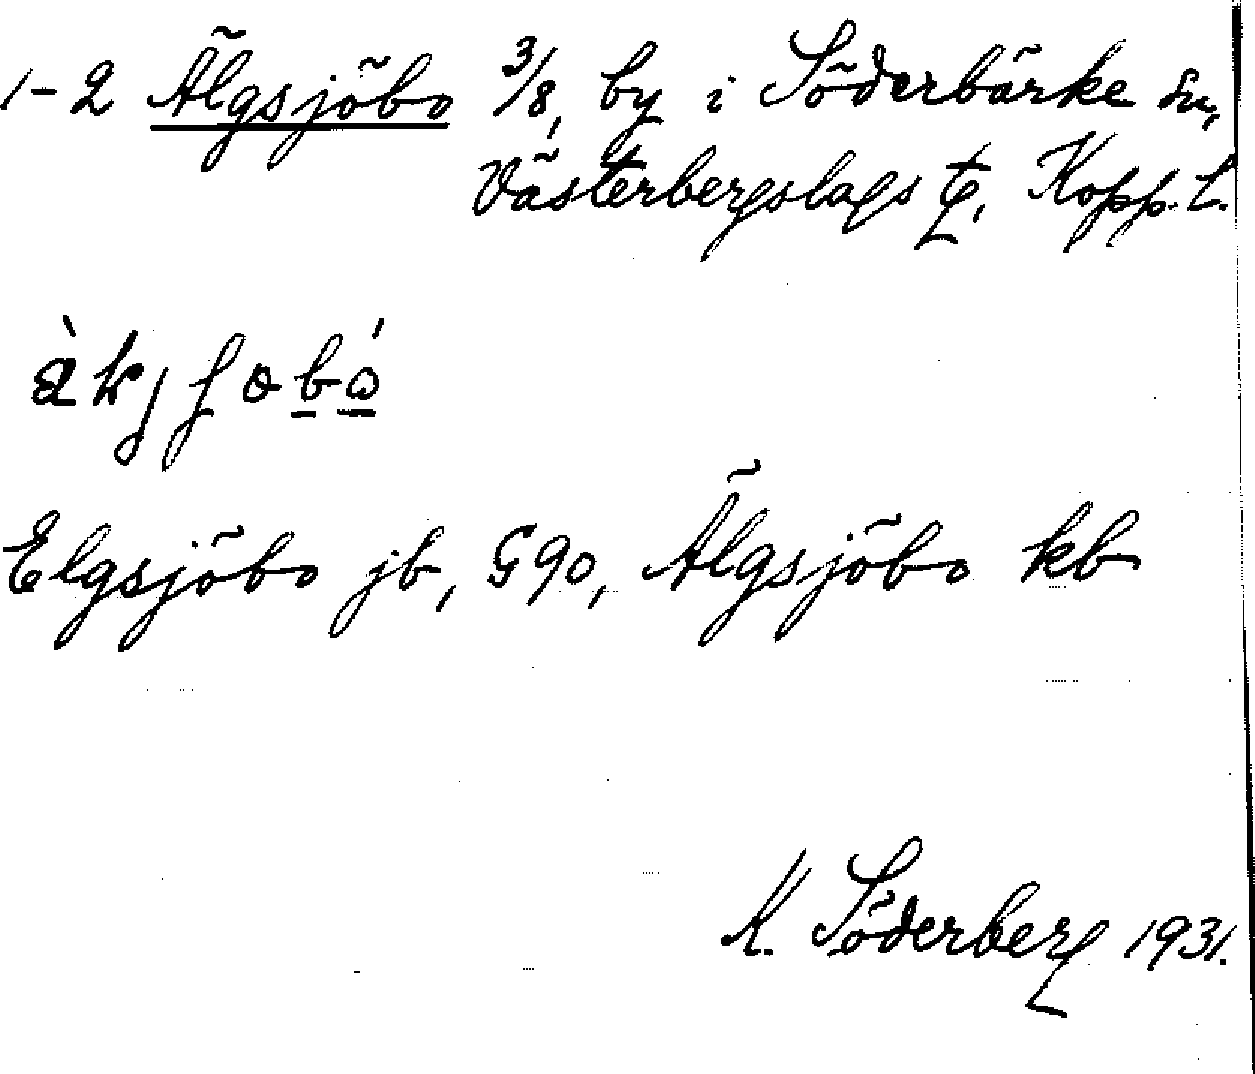 1-2 Älgsjöbo 3/8, by i Söderbärke sn,
Västerbergslags tg, Kopp. L.
Elgsjöbo jb, G90, Älgsjöbo kb
K. Söderberg 1931.